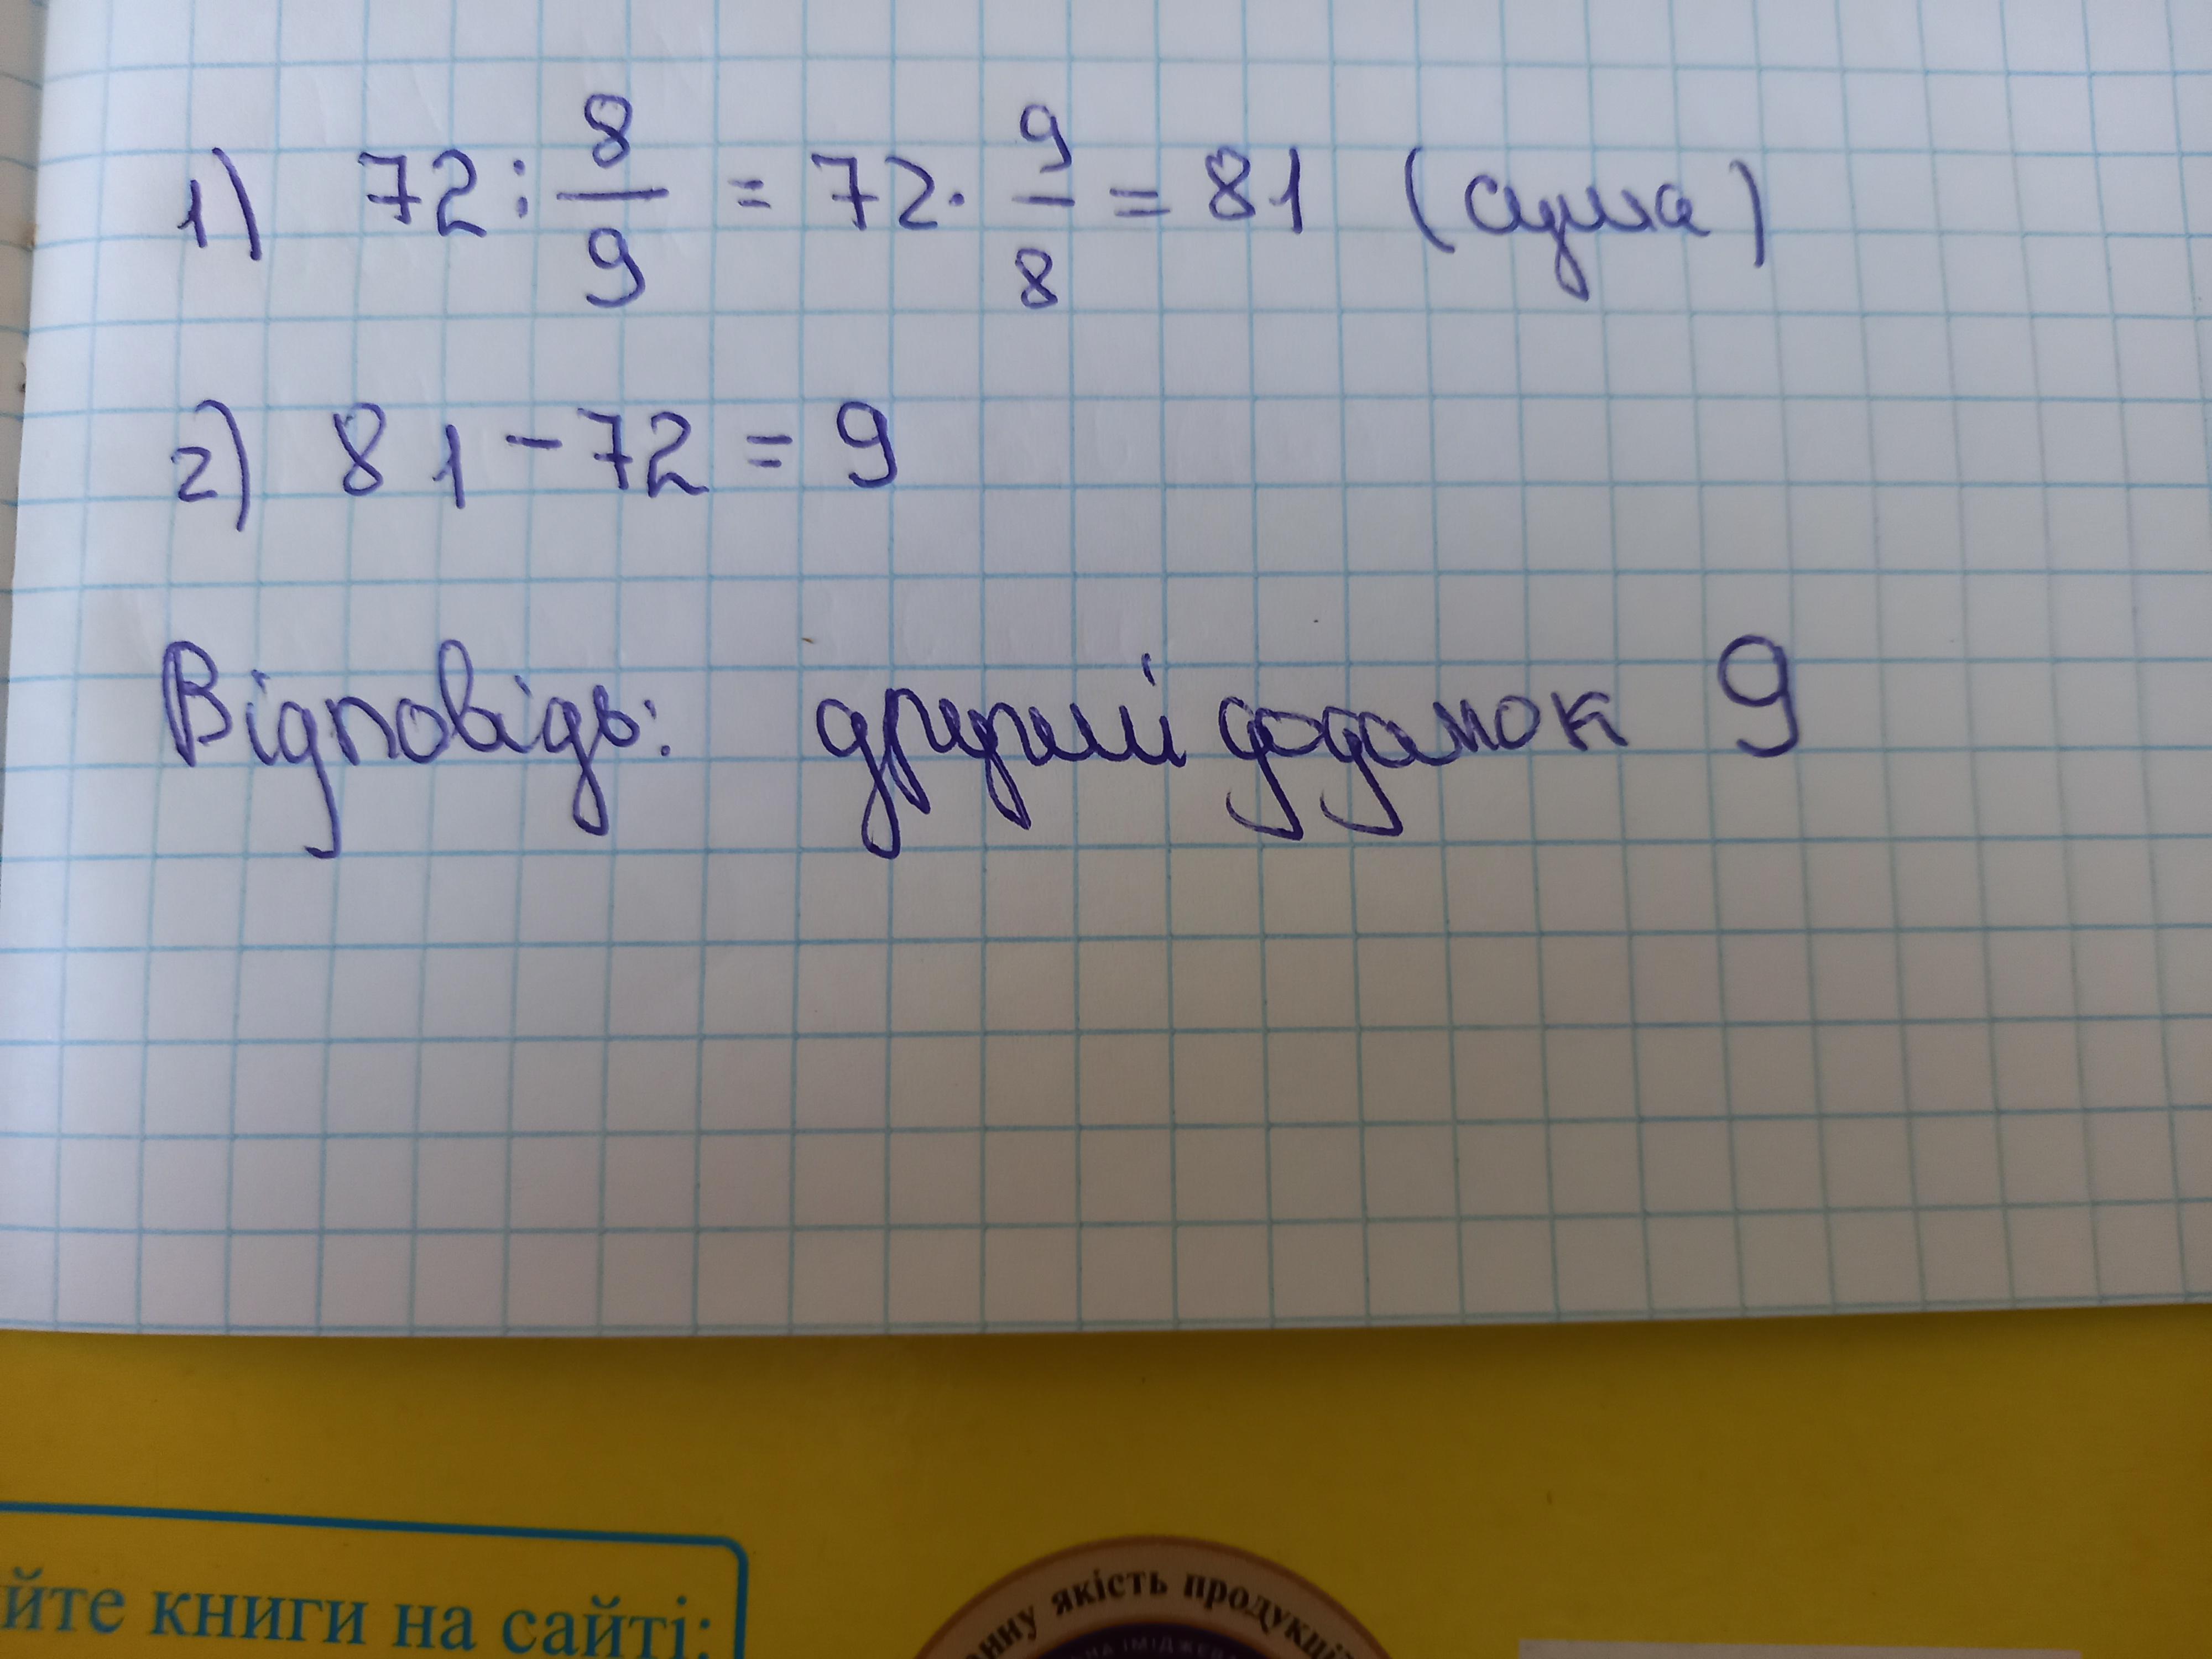 1) 72 : 8/9 = 72 · 9/8 = 81 (сума)
2) 81 - 72 = 9
Відповідь: другий доданок 9
йте книги на сайті:
нну якість продукції
НА ІМІДЖЕВ